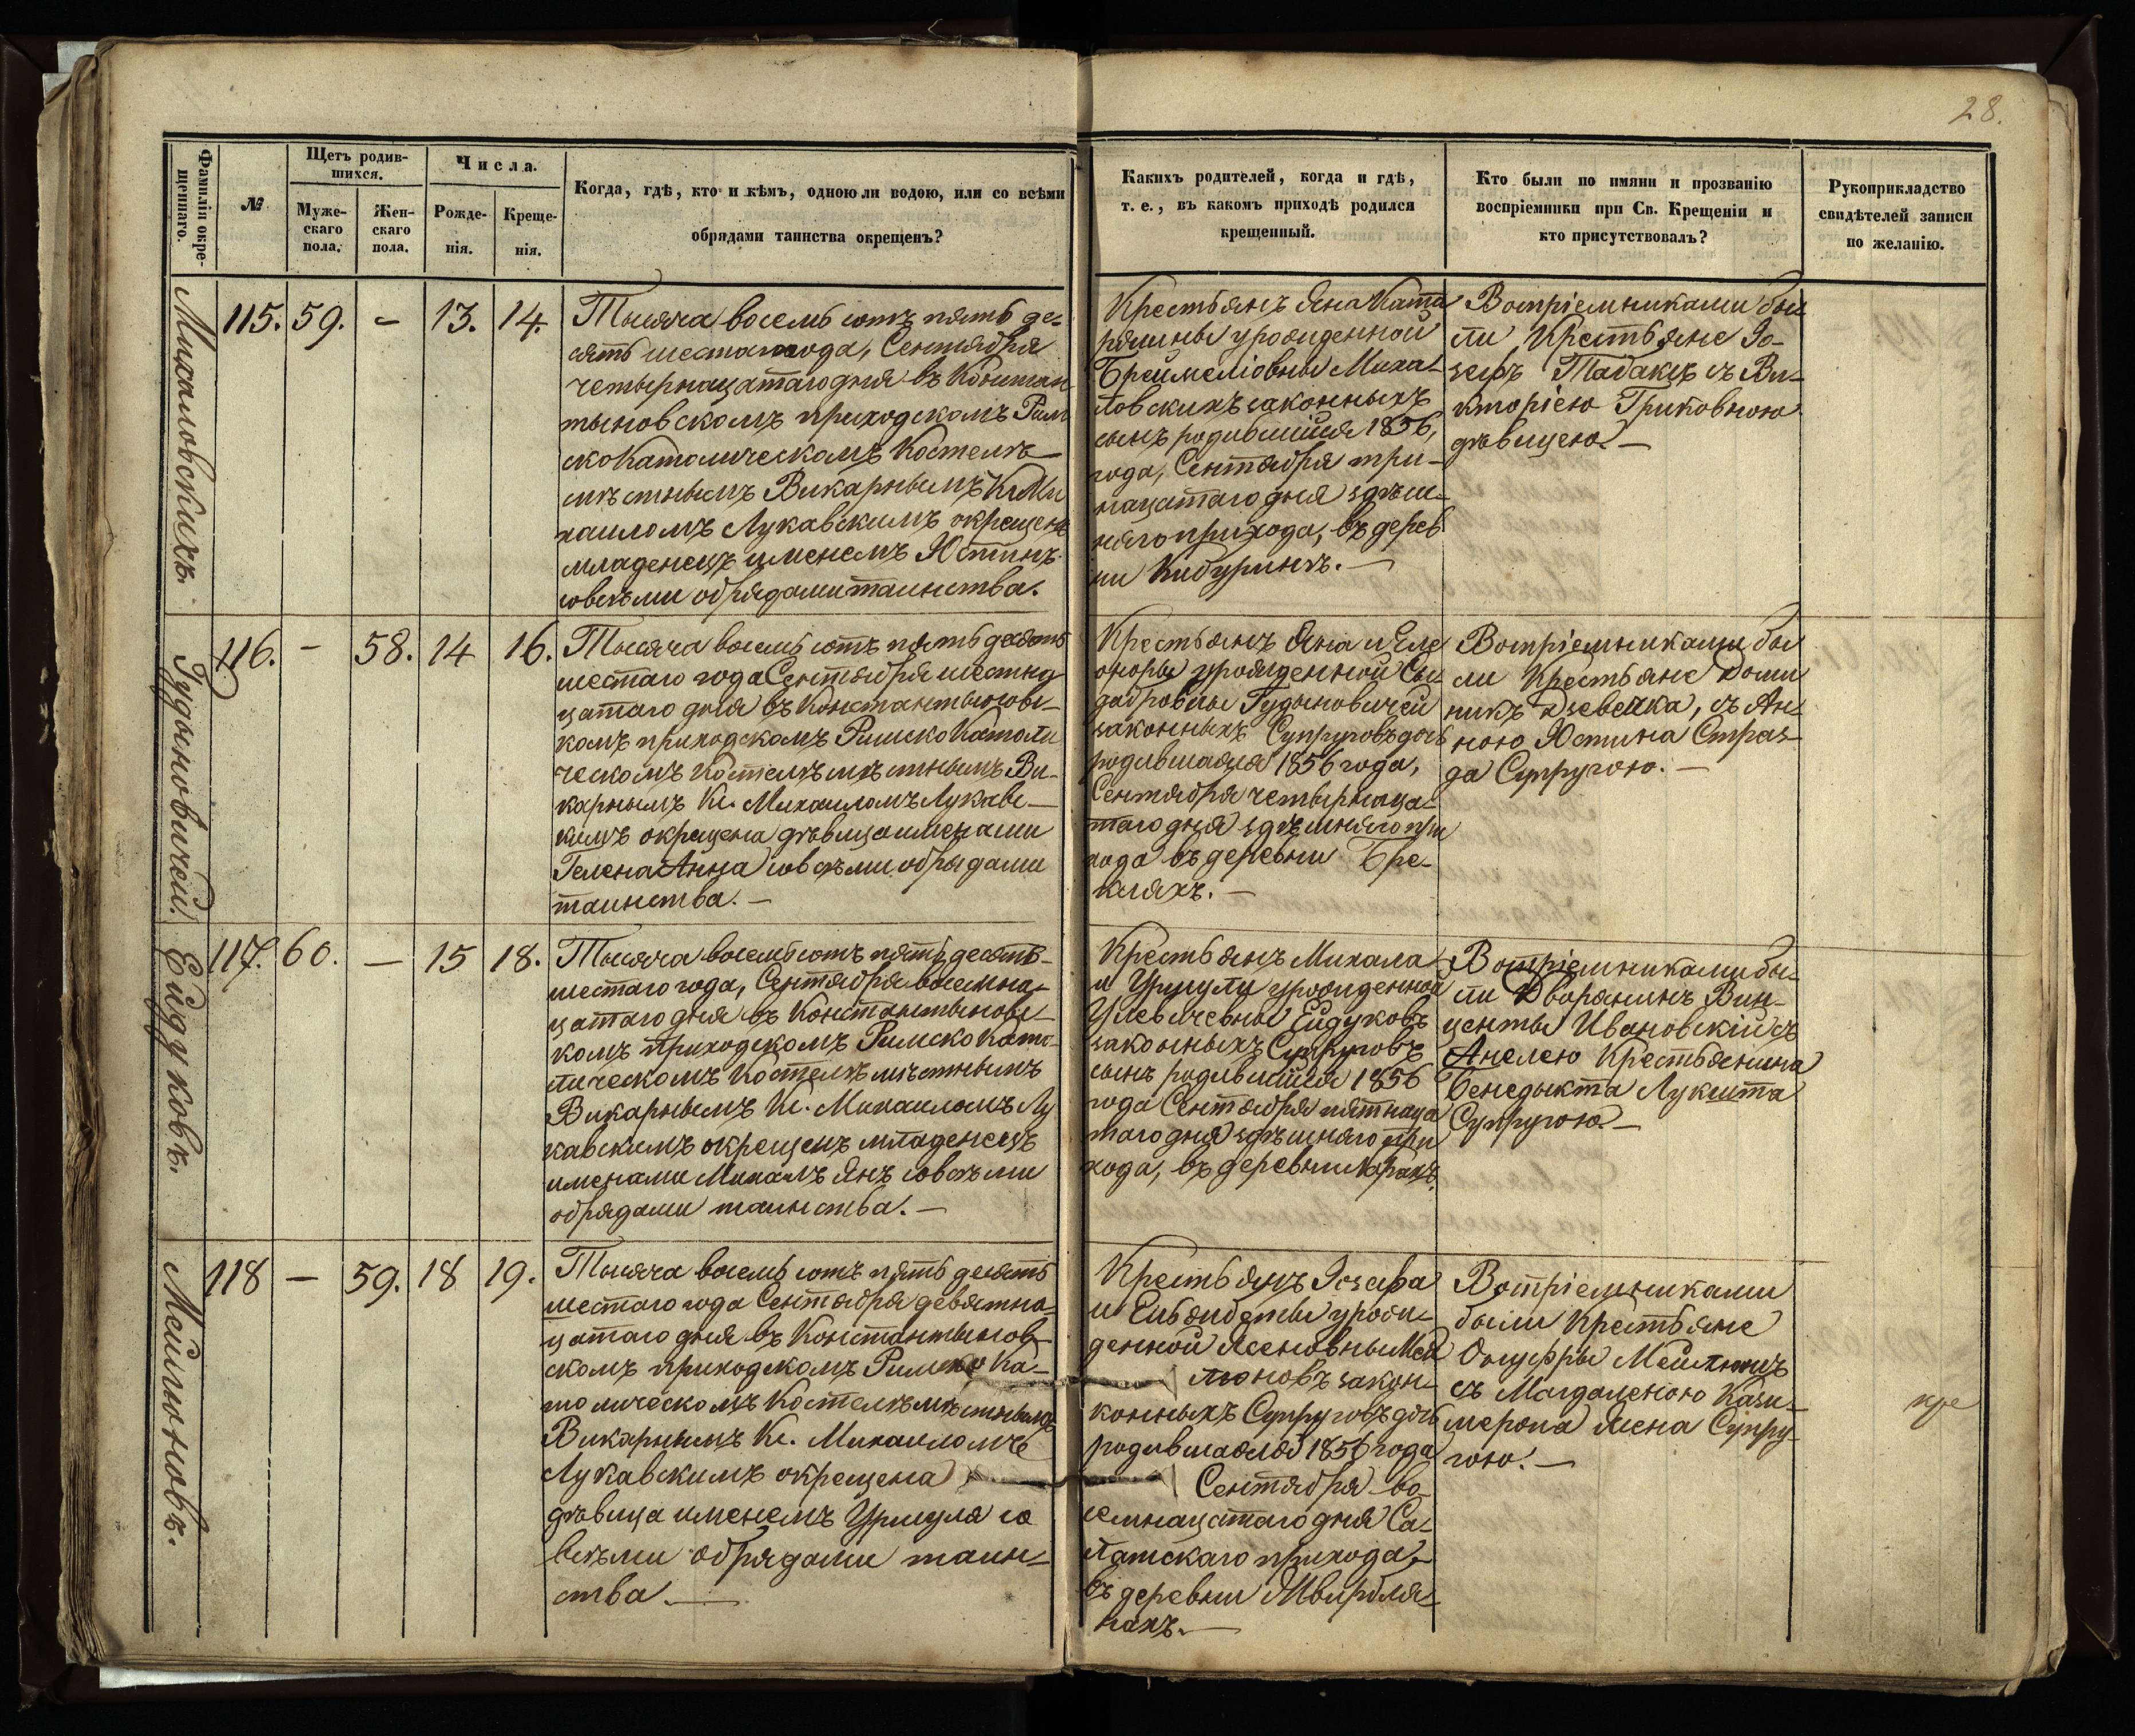 28.
Фамилія окре-
щеннаго.
№
Щетъ родив-
шихся.
Муже-
скаго
пола.
Жен-
скаго
пола.
Числа.
Рожде-
нія.
Креще-
нія.
Когда, гдѣ, кто и кѣмъ, одною ли водою, или со всѣми
обрядами таинства окрещенъ?
Какихъ родителей, когда и гдѣ,
т. е., въ какомъ приходѣ родился
крещенный.
Кто были по имяни и прозванію
воспріемники при Св. Крещеніи и
кто присутствовалъ?
Рукоприкладство
свидѣтелей записи
по желанію.
Михаловскихъ.
115. 59. - 13. 14.
Тысяча восемь сотъ пять де-
сять шестаго года, Сентября
четырнацатаго дня въ Констан
тыновскомъ приходскомъ Рим
ско Католическомъ Костелѣ
мѣстнымъ Викарнымъ К. Ми
хаиломъ Лукавскимъ окрещенъ
младенецъ именемъ Юстинъ
совсѣми обрядами таинства.
Крестьянъ Яна Ката
рыины урожденной
Миха-
ловскихъ законныхъ
сынъ родившійся 1856,
года, Сентября три-
нацатаго дня здѣш-
няго прихода, въ дерев
ни Кибуринъ.-
Вотріемниками бы
ли Крестьяне Іо-
зефъ Табакъ съ Ви-
кторіею Гриковною
дѣвицею.-
Гудыновичей.
116. - 58. 14 16.
Тысяча восемь сотъ пять десять
шестаго года Сентября шестна
цатаго дня въ Константыновс-
комъ приходскомъ Римско Католи
ческомъ Костелѣ мѣстнымъ Ви-
карнымъ К. Михаиломъ Лукавс-
кимъ окрещена дѣвица именами
Гелена Анна совсѣми обрядами
таинства.-
Крестьянъ Яна и Еле
оноры урожденной Сы
дабровны Гудыновичей
законныхъ Супруговъ дочь
родившаяся 1856 года,
Сентября четырнаца-
таго дня здѣшняго при
хода въ деревни Бре-
кляхъ.-
Вотріемниками бы
ли Крестьяне Доми
никъ Дзевечка, съ Ан-
ною Юстина Страз-
да Супругою.-
Ейдуковъ.
117. 60. - 15 18.
Тысяча восемь сотъ пять десять-
шестаго года, Сентября восемна-
цатаго дня въ Константыновс-
комъ Приходскомъ Римско Като-
лическомъ Костелѣ мѣстнымъ
Викарнымъ К. Михаиломъ Лу
кавскимъ окрещенъ младенецъ
именами Михалъ Янъ совсѣми
обрядами таинства.-
Крестьянъ Михала
и Уршули урожденной
Ейдуковъ
законныхъ Супруговъ
сынъ родившійся 1856
года Сентября пятнаца
таго дня здѣшняго при
хода, въ деревни
Вотріемниками бы-
ли Дворянинъ Вин-
центы Ивановскій съ
Анелею Крестьянина
Бенедыкта Лукшта
Супругою-
Мейлюновъ.
118 - 59. 18 19.
Тысяча восемь сотъ пять десять
шестаго года Сентября девятна-
цатаго дня въ Константынов-
скомъ приходскомъ Римско Ка-
толическомъ Костелѣ мѣстнымъ
Викарнымъ К. Михаиломъ
Лукавскимъ окрещена
дѣвица именемъ Уршуля со
всѣми обрядами таин-
ства.-
Крестьянъ Іозефа
и Ельжбеты урож-
денной Ясеновны Мей
люновъ закон-
конныхъ Супруговъ дочь
родившаяся 1856 года
Сентября во-
семнацатаго дня Са-
латскаго прихода,
въ деревни Швирбля-
нахъ.-
Вотріемниками
были Крестьяне
Онуфры Мейлюнъ
съ Магдаленою Кази-
мерона Ясена Супру-
гою.-